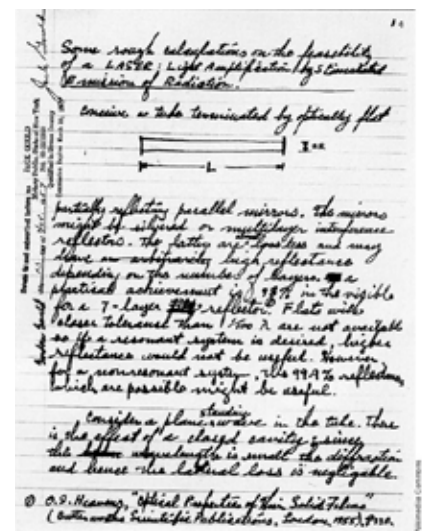 Some rough calculations on the feasibility
of a LASER: Light Amplification by Stimulated
Emission of Radiation.
conceive a tube terminated by optically flat
L
partially reflecting parallel mirrors. The mirrors
might be silvered or multilayer interference
reflectors. The latter are lossless and may
have an arbitrarily high reflectance
depending on the number of layers. a
practical achievement is 98% in the visible
for a 7-layer reflector. Flats with
closer tolerance than are not available
so if a resonant system is desired, higher
reflectance would not be useful. However
for a nonresonant system, the 99.9% reflectances
which are possible might be useful.
Consider a plane standing wave in the tube. There
is the effect of a closed cavity; since
the wavelength is small the diffraction
and hence the lateral loss is negligible.
O.S. Heavens, "Optical Properties of Thin Solid Films"
(Butterworths Scientific Publications, London, 1955),
JACK GOULD
Notary Public, State of New York
Gordon Gould
Wikimedia Commons